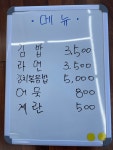 메뉴
김밥 3,500
라면 3,500
김치볶음밥 5,000
어묵 800
계란 500